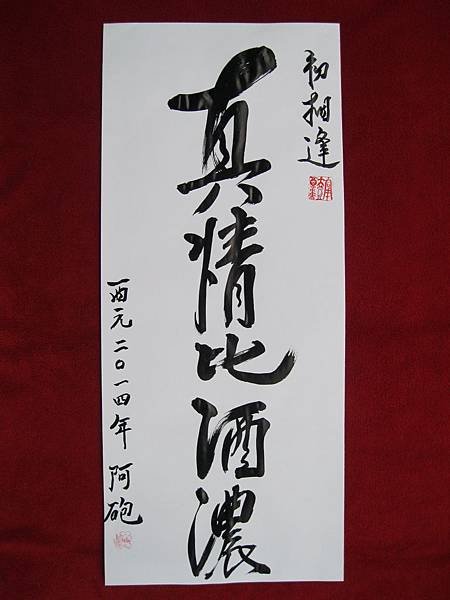 初相逢
真情比酒濃
西元二〇一四年 阿砲